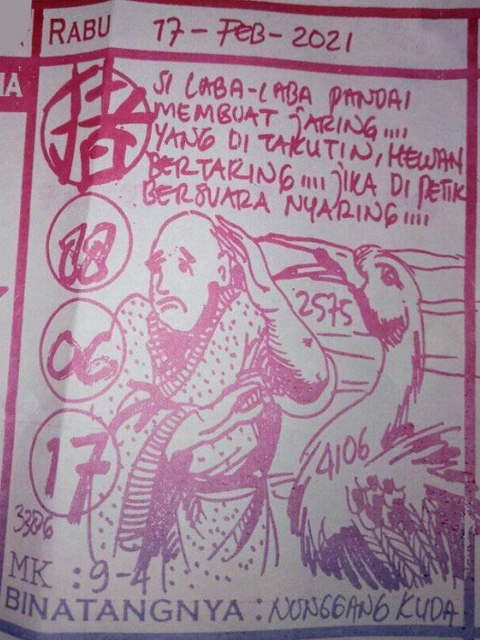 RABU 17 - FEB - 2021
猪
SI LABA-LABA PANDAI
MEMBUAT JARING....
YANG DI TAKUTIN, HEWAN
BERTARING.... JIKA DI PETIK
BERSUARA NYARING....
2575
06
17
4106
MK : 9-4
BINATANGNYA : NONGGANG KUDA